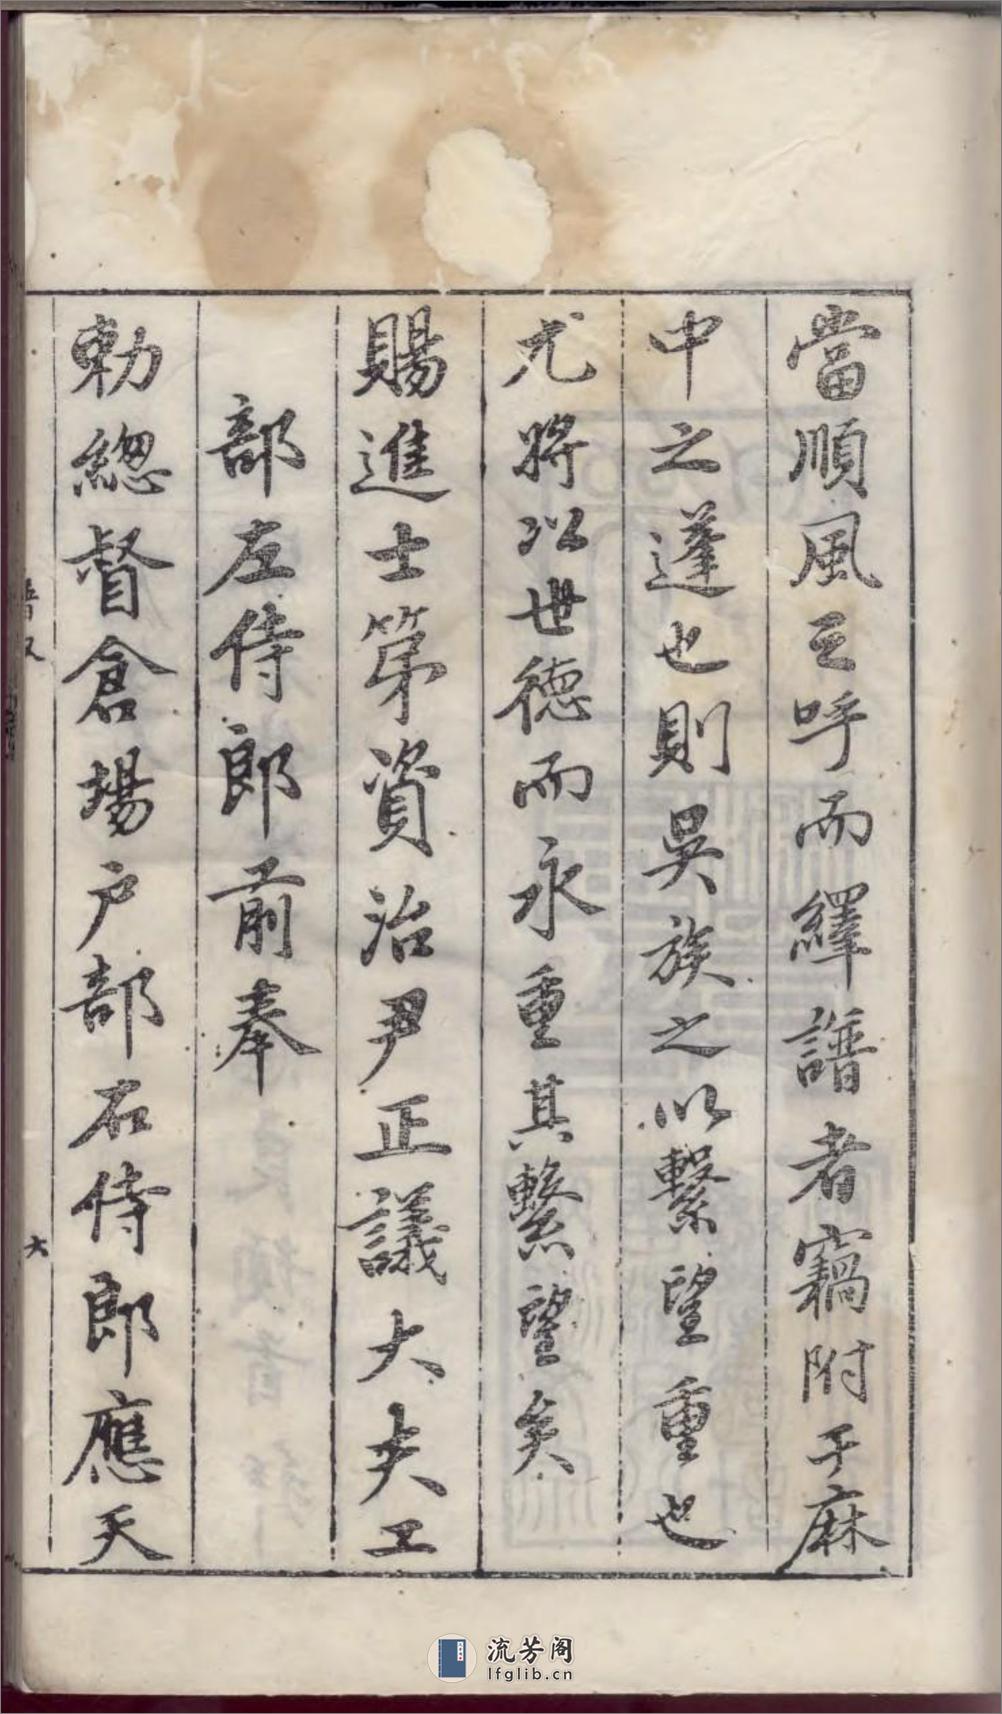 當順風之呼而繹譜者竊附于麻
中之蓬也則吳族之以繫望重也
尤將以世德而永重其繫望矣
賜進士第資治尹正議大夫工
部左侍郎前奉
勅總督倉場户部右侍郎應天
六
流芳阁
lfglib.cn